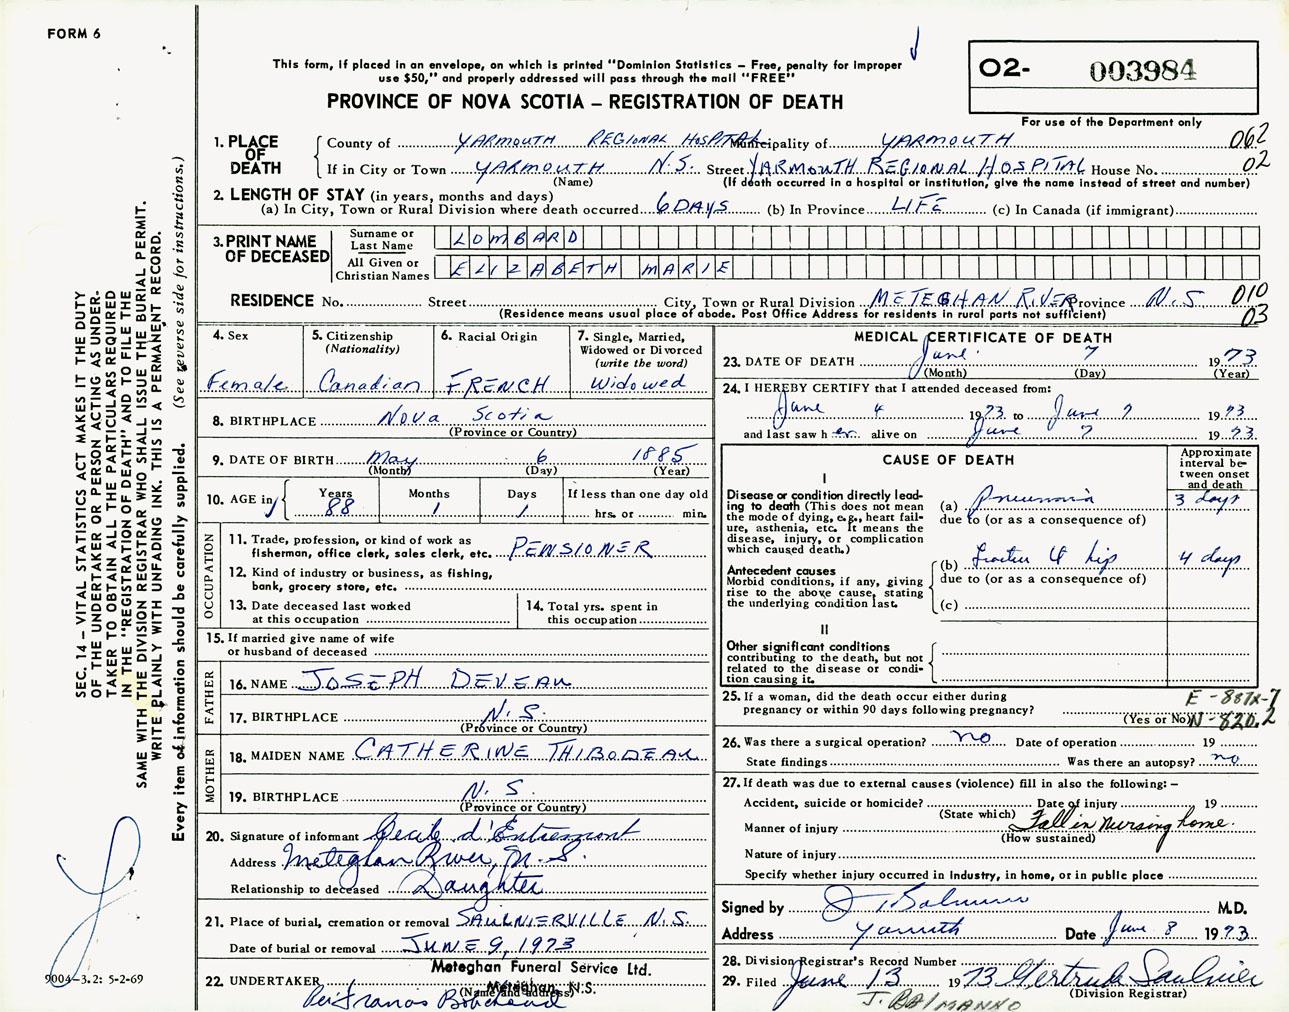 FORM 6
This form, if placed in an envelope, on which is printed "Dominion Statistics – Free, penalty for improper
use $50," and properly addressed will pass through the mail "FREE"
O2- 003984
For use of the Department only
PROVINCE OF NOVA SCOTIA – REGISTRATION OF DEATH
1. PLACE OF DEATH
County of YARMOUTH REGIONAL HOSPITAL Municipality of YARMOUTH 062
If in City or Town YARMOUTH N.S. Street YARMOUTH REGIONAL HOSPITAL House No. 02
(Name) (If death occurred in a hospital or institution, give the name instead of street and number)
2. LENGTH OF STAY (in years, months and days)
(a) In City, Town or Rural Division where death occurred 6 DAYS (b) In Province LIFE (c) In Canada (if immigrant)
3. PRINT NAME OF DECEASED
Surname or Last Name LOMBARD
All Given or Christian Names ELIZABETH MARIE
RESIDENCE No. Street City, Town or Rural Division METEGHAN RIVER Province N.S. 010
(Residence means usual place of abode. Post Office Address for residents in rural parts not sufficient) 03
4. Sex Female
5. Citizenship (Nationality) Canadian
6. Racial Origin FRENCH
7. Single, Married, Widowed or Divorced (write the word) Widowed
8. BIRTHPLACE Nova Scotia
(Province or Country)
9. DATE OF BIRTH May 6 1885
(Month) (Day) (Year)
10. AGE in Years 88 Months 1 Days 1 If less than one day old hrs. or min.
OCCUPATION
11. Trade, profession, or kind of work as
fisherman, office clerk, sales clerk, etc. PENSIONER
12. Kind of industry or business, as fishing,
bank, grocery store, etc.
13. Date deceased last worked
at this occupation
14. Total yrs. spent in
this occupation
15. If married give name of wife
or husband of deceased
FATHER
16. NAME JOSEPH DEVEAU
17. BIRTHPLACE N.S.
(Province or Country)
MOTHER
18. MAIDEN NAME CATHERINE THIBODEAU
19. BIRTHPLACE N.S.
(Province or Country)
20. Signature of informant Cecile d'Entremont
Address Meteghan River, N.S.
Relationship to deceased Daughter
21. Place of burial, cremation or removal SAULNIERVILLE N.S.
Date of burial or removal JUNE 9, 1973
22. UNDERTAKER Meteghan Funeral Service Ltd.
Meteghan, N.S.
(Name and address)
Per Francis
MEDICAL CERTIFICATE OF DEATH
23. DATE OF DEATH June 7 1973
(Month) (Day) (Year)
24. I HEREBY CERTIFY that I attended deceased from:
June 4 1973 to June 7 1973
and last saw her alive on June 7 1973
CAUSE OF DEATH
Approximate interval between onset and death
I
Disease or condition directly lead-
ing to death (This does not mean
the mode of dying, e.g., heart fail-
ure, asthenia, etc. It means the
disease, injury, or complication
which caused death.)
(a) Pneumonia 3 days
due to (or as a consequence of)
Antecedent causes
Morbid conditions, if any, giving
rise to the above cause, stating
the underlying condition last.
(b) Fracture hip 4 days
due to (or as a consequence of)
(c)
II
Other significant conditions
contributing to the death, but not
related to the disease or condi-
tion causing it.
25. If a woman, did the death occur either during
pregnancy or within 90 days following pregnancy?
(Yes or No)
E - 887X-7
N - 820.2
26. Was there a surgical operation? no Date of operation 19
State findings Was there an autopsy? no
27. If death was due to external causes (violence) fill in also the following: –
Accident, suicide or homicide? Date of injury 19
(State which)
Manner of injury Fall in nursing home.
(How sustained)
Nature of injury
Specify whether injury occurred in industry, in home, or in public place
Signed by M.D.
Address Yarmouth Date June 8 1973
28. Division Registrar's Record Number
29. Filed June 13 1973 Gertrude Saulnier
(Division Registrar)
J. BALMANNO
SEC. 14 – VITAL STATISTICS ACT MAKES IT THE DUTY
OF THE UNDERTAKER OR PERSON ACTING AS UNDER-
TAKER TO OBTAIN ALL THE PARTICULARS REQUIRED
IN THE "REGISTRATION OF DEATH" AND TO FILE THE
SAME WITH THE DIVISION REGISTRAR WHO SHALL ISSUE THE BURIAL PERMIT.
WRITE PLAINLY WITH UNFADING INK. THIS IS A PERMANENT RECORD.
Every item of information should be carefully supplied. (See reverse side for instructions.)
9004-3.2: 5-2-69